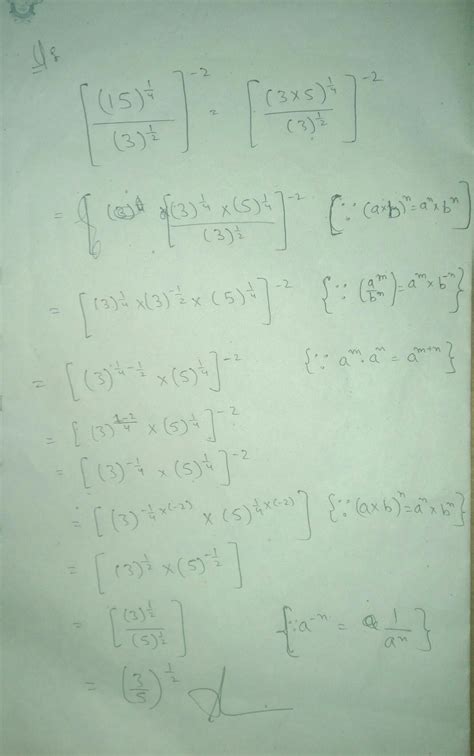 Q8
[(15)^{1/4} / (3)^{1/2}]^{-2} = [(3×5)^{1/4} / (3)^{1/2}]^{-2}
= [(3)^{1/4} × (5)^{1/4} / (3)^{1/2}]^{-2} [∵ (a×b)^n = a^n × b^n]
= [(3)^{1/4} × (3)^{-1/2} × (5)^{1/4}]^{-2} {∵ (a^m / b^n) = a^m × b^{-n}}
= [(3)^{1/4 - 1/2} × (5)^{1/4}]^{-2} {∵ a^m · a^n = a^{m+n}}
= [(3)^{1-2/4} × (5)^{1/4}]^{-2}
= [(3)^{-1/4} × (5)^{1/4}]^{-2}
= [(3)^{-1/4 × (-2)} × (5)^{1/4 × (-2)}] {∵ (a×b)^n = a^n × b^n}
= [(3)^{1/2} × (5)^{-1/2}]
= [(3)^{1/2} / (5)^{1/2}] {∵ a^{-n} = 1 / a^n}
= (3/5)^{1/2}